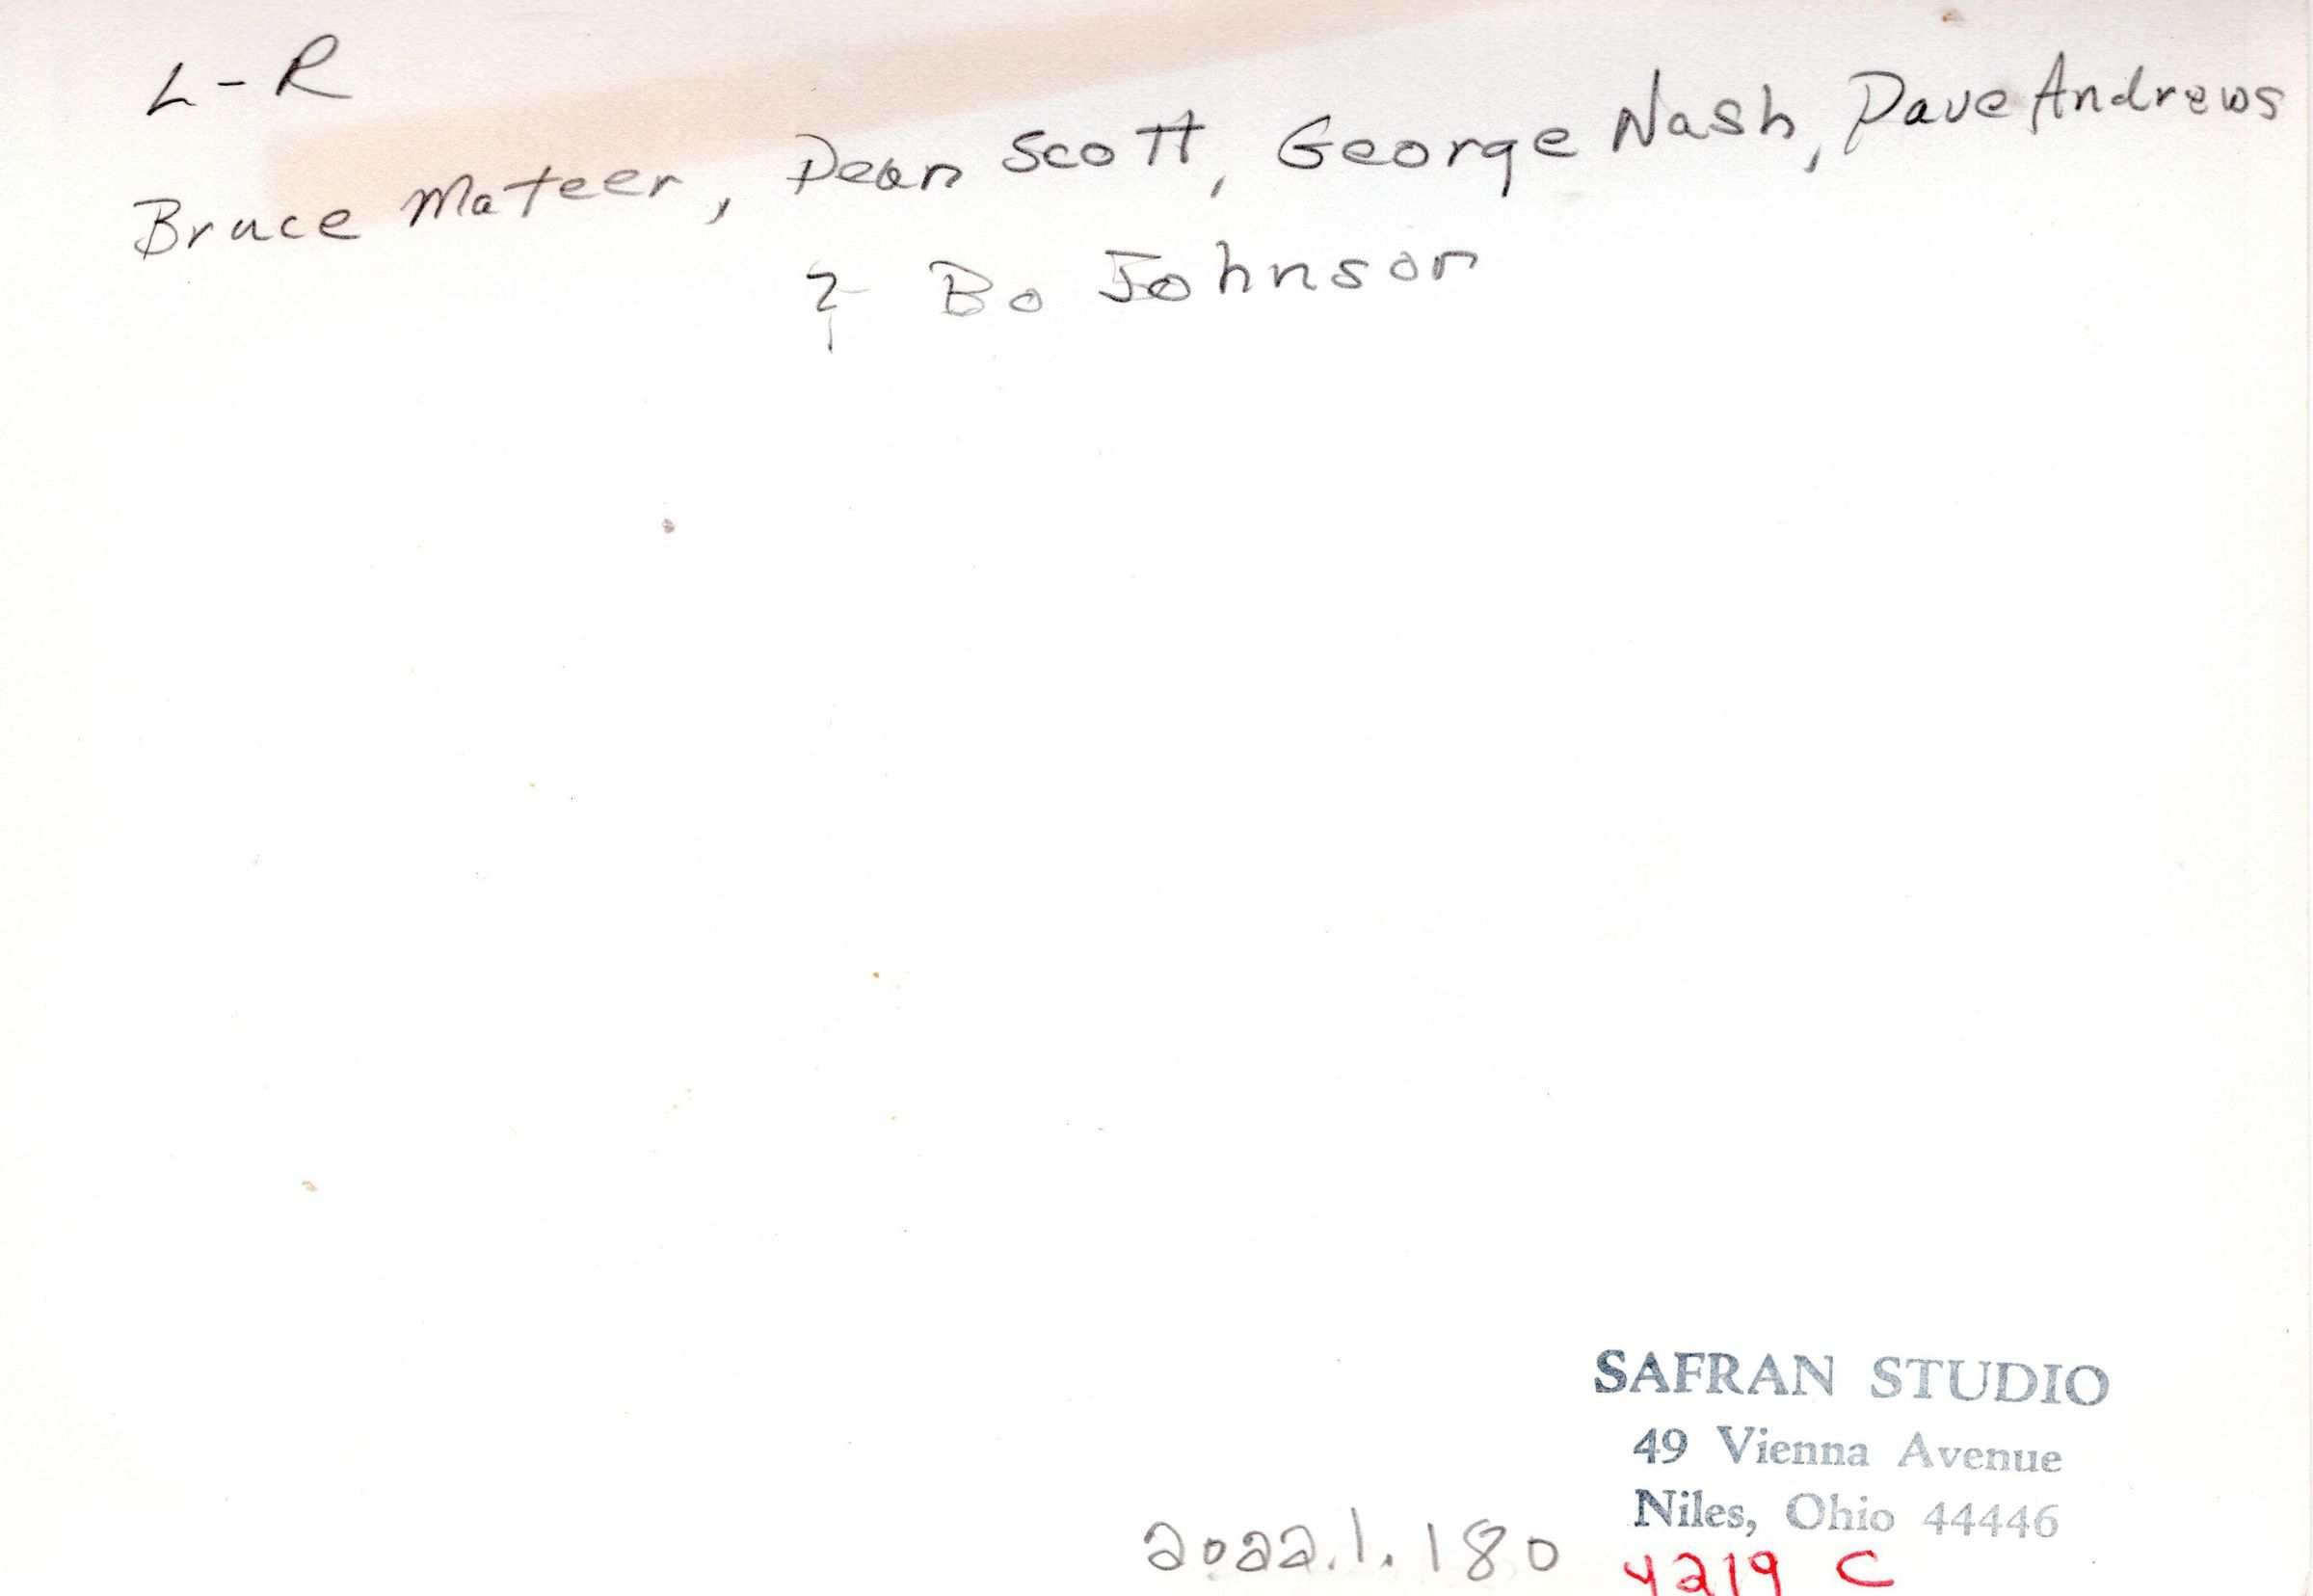 L-R
Bruce Mateer, Dean Scott, George Nash, Dave Andrews
& Bo Johnson
SAFRAN STUDIO
49 Vienna Avenue
Niles, Ohio 44446
2022.1.180
4219 C